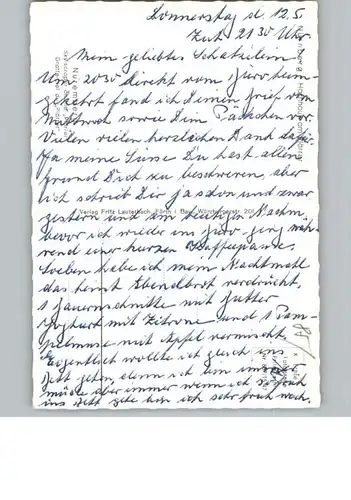 Donnerstag d. 12.5.
Zeit 21 30 Uhr.
Mein geliebtes Schatzilein
Um 20 30 direkt vom heim-
gekehrt fand ich Deinen Brief vom
Mittwoch sowie Dein Päckchen vor.
Vielen vielen herzlichen Dank dafür.
Ja meine Du hast allen
Grund Dich zu beschweren, aber
ich schreib Dir ja schon und zwar
gestern und am heutigen Nachm.
bevor ich wieder ins ging, wäh-
rend einer kurzen Kaffeepause.
Soeben habe ich mein Nachtmahl
das heißt Abendbrot verdrückt.
Bauernschnitte mit Butter
Yoghurt mit Zitrone und 1 Pam-
pelmuse mit Apfel vermischt.
Eigentlich wollte ich gleich ins
Bett gehen, denn ich bin immer
müde aber immer wenn ich so früh
ins Bett gehe bin ich sehr früh wach.
Verlag Fritz Lauterbach, Fürth i. Bay., Würzburgerstr.
Nuremberg